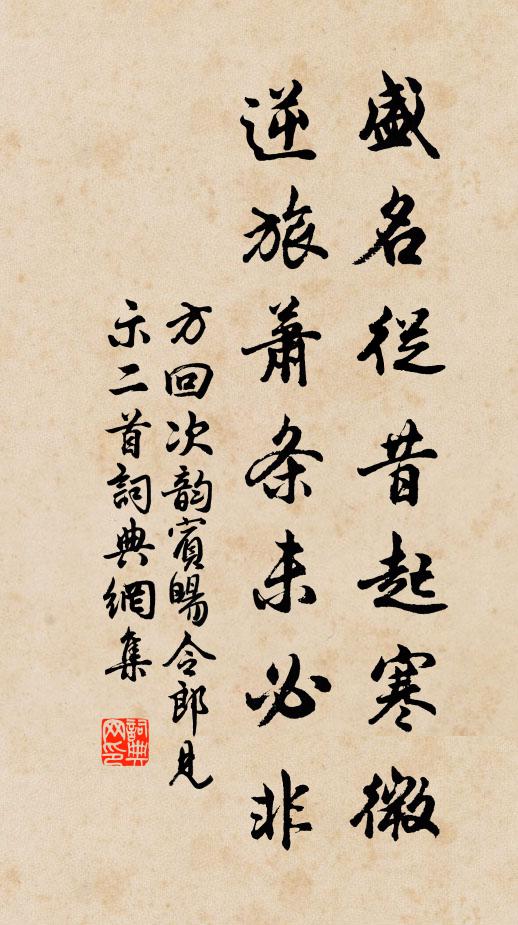 盛名從昔起寒微
逆旅蕭条未必非
方回次韵賓暘令郎見
示二首詞典網集
詞典网印